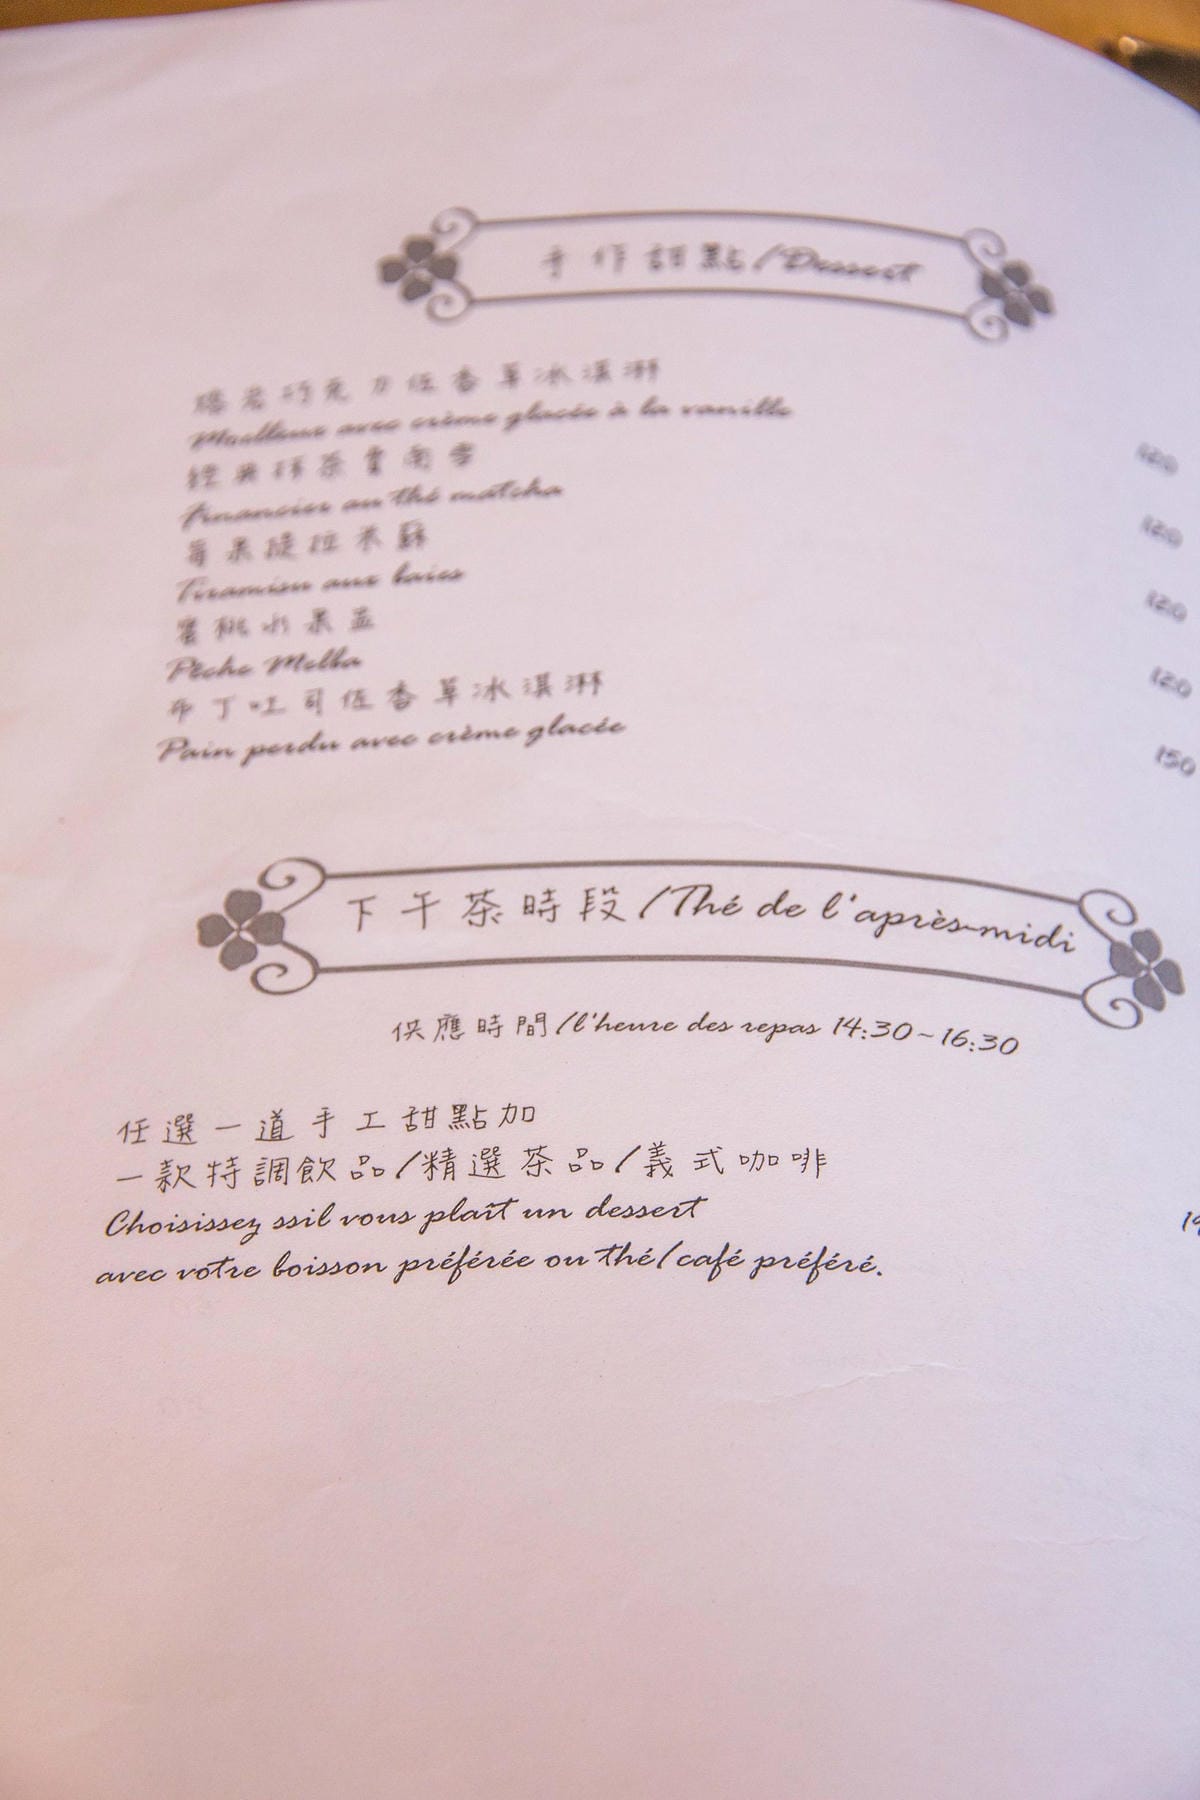 手作甜點/Dessert
熔岩巧克力佐香草冰淇淋
Moelleux avec crème glacée à la vanille
120
經典抹茶費南雪
Financier au thé matcha
120
莓果提拉米蘇
Tiramisu aux baies
120
蜜桃水果盅
Pêche Melba
120
布丁吐司佐香草冰淇淋
Pain perdu avec crème glacée
150
下午茶時段/Thé de l'après-midi
供應時間/l'heure des repas 14:30~16:30
任選一道手工甜點加
一款特調飲品/精選茶品/義式咖啡
Choisissez ssil vous plaît un dessert
avec votre boisson préférée ou thé/café préféré.